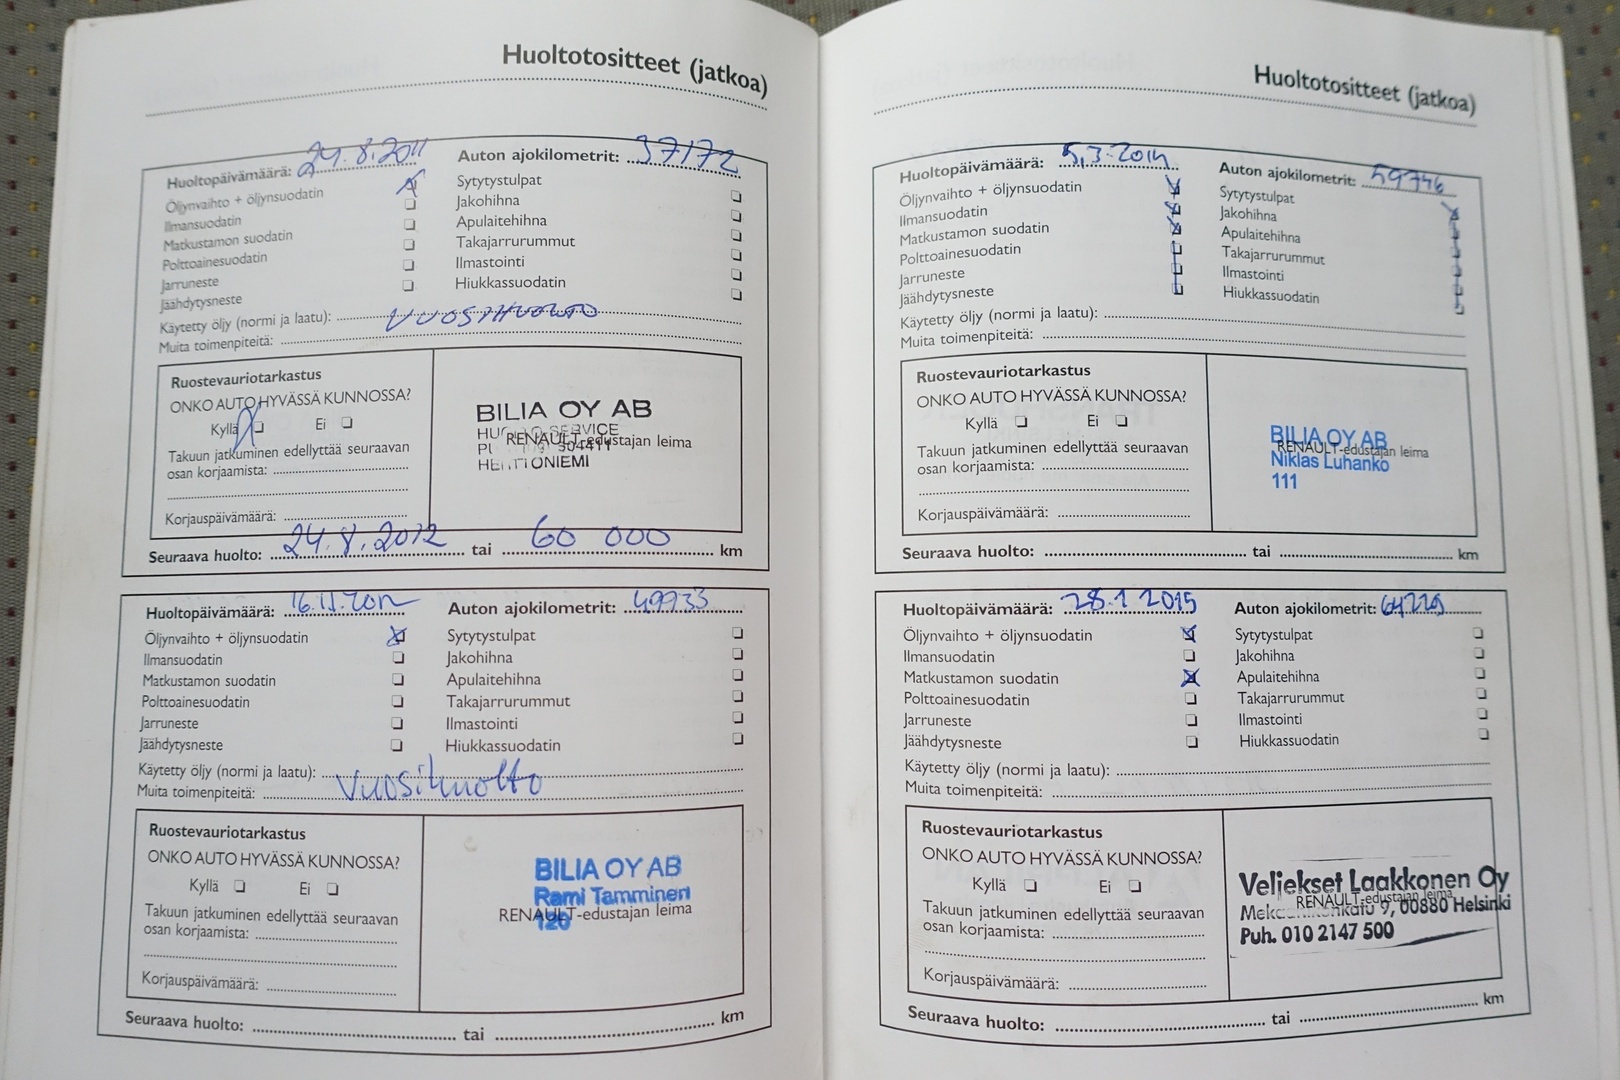 Huoltotositteet (jatkoa)
Huoltopäivämäärä: 24.8.2011 Auton ajokilometrit: 37172
Öljynvaihto + öljynsuodatin Sytytystulpat
Ilmansuodatin Jakohihna
Matkustamon suodatin Apulaitehihna
Polttoainesuodatin Takajarrurummut
Jarruneste Ilmastointi
Jäähdytysneste Hiukkassuodatin
Käytetty öljy (normi ja laatu): VUOSIHUOLTO
Muita toimenpiteitä:
Ruostevauriotarkastus
ONKO AUTO HYVÄSSÄ KUNNOSSA?
Kyllä Ei
Takuun jatkuminen edellyttää seuraavan
osan korjaamista:
Korjauspäivämäärä:
BILIA OY AB
SERVICE
RENAULT-edustajan leima
504411
Seuraava huolto: 24.8.2012 tai 60 000 km
Huoltopäivämäärä: 16.11.2012 Auton ajokilometrit: 49933
Öljynvaihto + öljynsuodatin Sytytystulpat
Ilmansuodatin Jakohihna
Matkustamon suodatin Apulaitehihna
Polttoainesuodatin Takajarrurummut
Jarruneste Ilmastointi
Jäähdytysneste Hiukkassuodatin
Käytetty öljy (normi ja laatu):
Muita toimenpiteitä: Vuosihuolto
Ruostevauriotarkastus
ONKO AUTO HYVÄSSÄ KUNNOSSA?
Kyllä Ei
Takuun jatkuminen edellyttää seuraavan
osan korjaamista:
Korjauspäivämäärä:
BILIA OY AB
Rami Tamminen
RENAULT-edustajan leima
120
Seuraava huolto: tai km
Huoltotositteet (jatkoa)
Huoltopäivämäärä: 5.3.2014 Auton ajokilometrit: 59746
Öljynvaihto + öljynsuodatin Sytytystulpat
Ilmansuodatin Jakohihna
Matkustamon suodatin Apulaitehihna
Polttoainesuodatin Takajarrurummut
Jarruneste Ilmastointi
Jäähdytysneste Hiukkassuodatin
Käytetty öljy (normi ja laatu):
Muita toimenpiteitä:
Ruostevauriotarkastus
ONKO AUTO HYVÄSSÄ KUNNOSSA?
Kyllä Ei
Takuun jatkuminen edellyttää seuraavan
osan korjaamista:
Korjauspäivämäärä:
BILIA OY AB
RENAULT-edustajan leima
Niklas Luhanko
111
Seuraava huolto: tai km
Huoltopäivämäärä: 28.1.2015 Auton ajokilometrit: 64229
Öljynvaihto + öljynsuodatin Sytytystulpat
Ilmansuodatin Jakohihna
Matkustamon suodatin Apulaitehihna
Polttoainesuodatin Takajarrurummut
Jarruneste Ilmastointi
Jäähdytysneste Hiukkassuodatin
Käytetty öljy (normi ja laatu):
Muita toimenpiteitä:
Ruostevauriotarkastus
ONKO AUTO HYVÄSSÄ KUNNOSSA?
Kyllä Ei
Takuun jatkuminen edellyttää seuraavan
osan korjaamista:
Korjauspäivämäärä:
Veljekset Laakkonen Oy
RENAULT-edustajan leima
9, 00880 Helsinki
Puh. 010 2147 500
Seuraava huolto: tai km